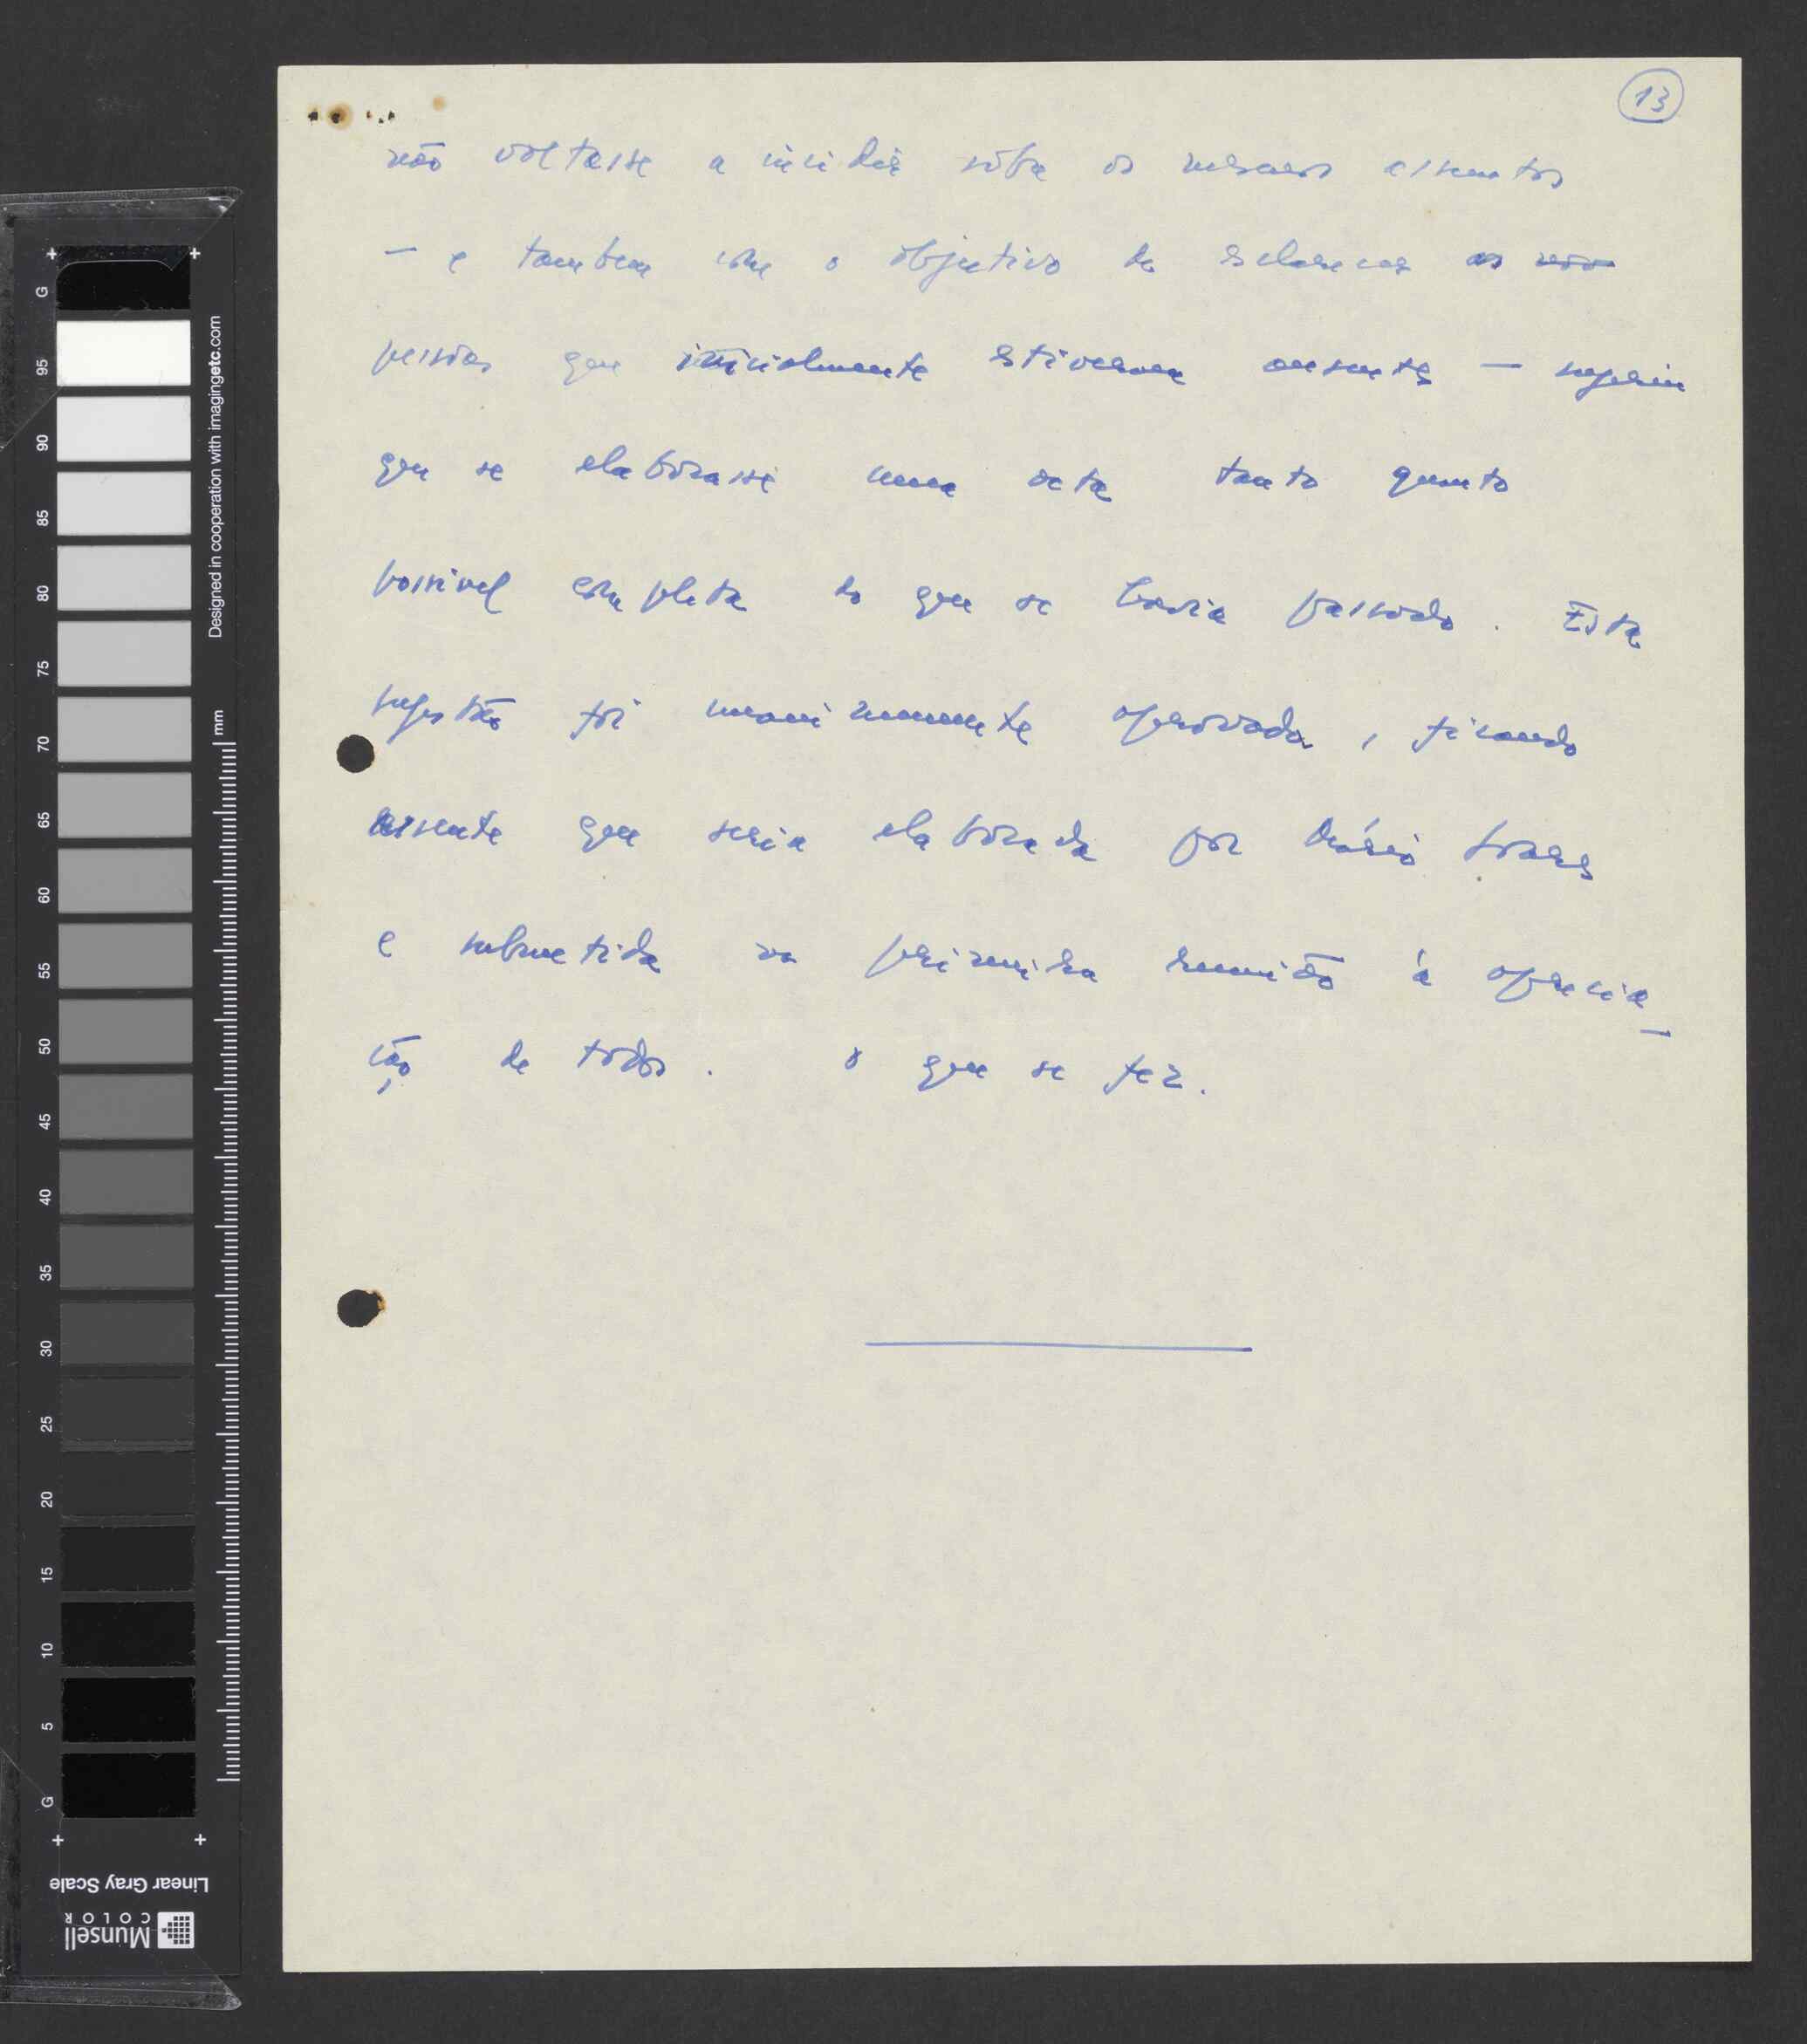 13
não voltasse a incidir sôbre os mesmos assuntos
— e tambem com o objetivo de esclarecer as não
pessoas que inicialmente estiveram ausentes — sugeriu
que se elaborasse uma acta tanto quanto
possivel completa do que se havia passado. Esta
sugestão foi unanimemente aprovada, ficando
assente que seria elaborada por Mário Soares
e submetida na primeira reunião à aprecia-
ção de todos. O que se fez.
G
95
90
85
80
75
70
65
60
55
50
45
40
35
30
25
20
15
10
5
G
Designed in cooperation with imagingetc.com
mm
Linear Gray Scale
Munsell
COLOR